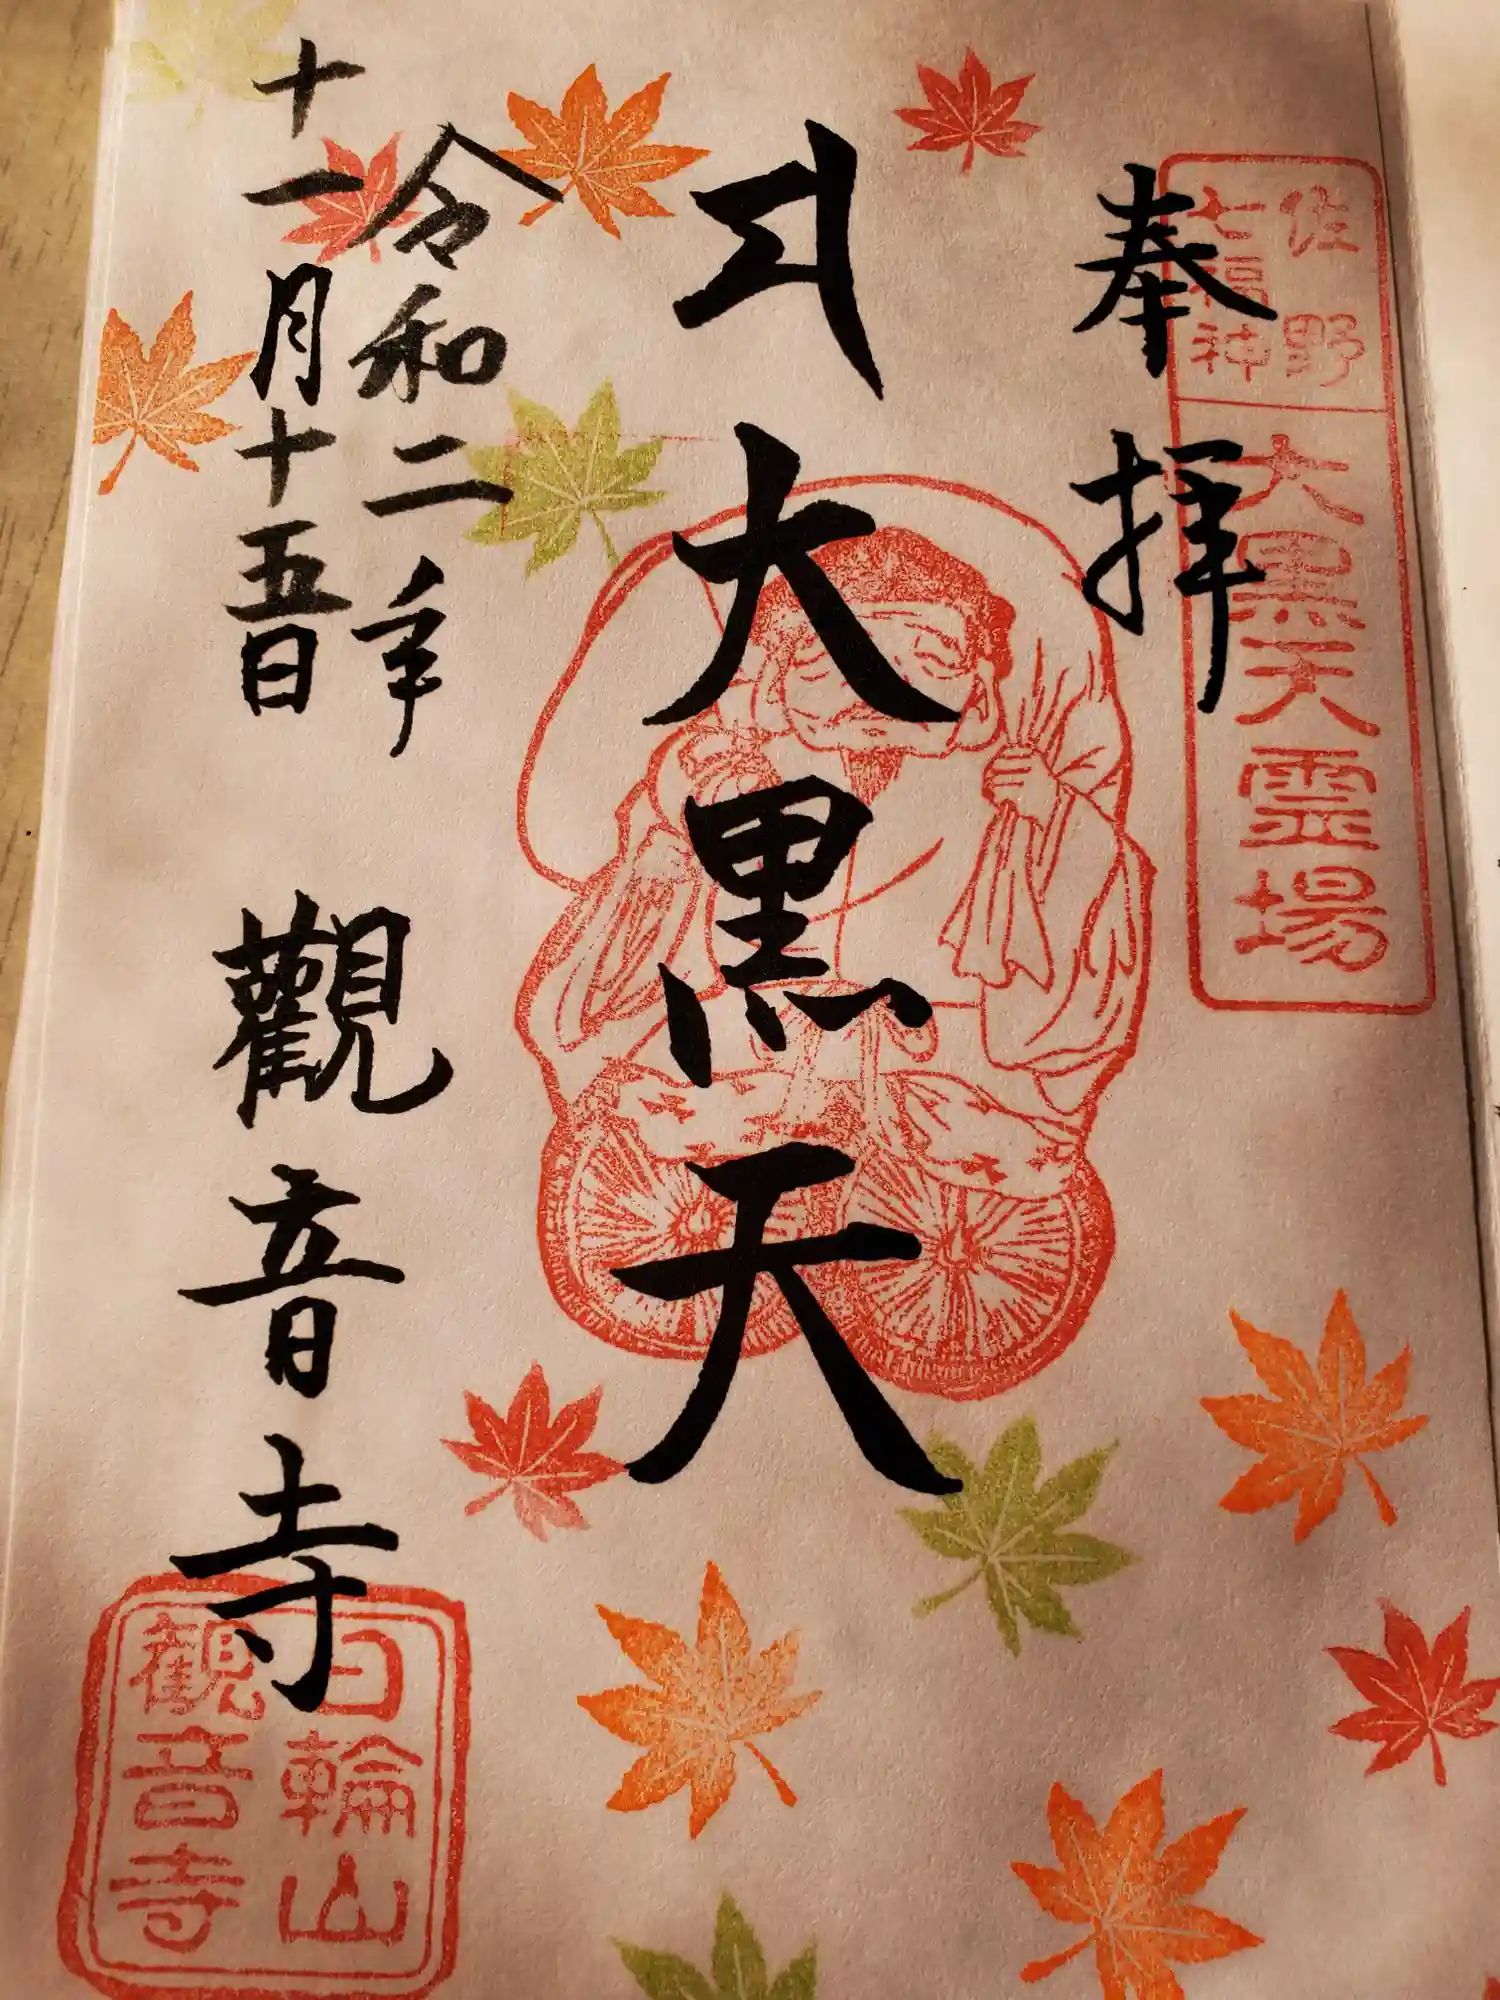 奉拝
佐野
七福神
大黒天霊場
大黒天
令和二年
十一月十五日
觀音寺
日輪山
観音寺